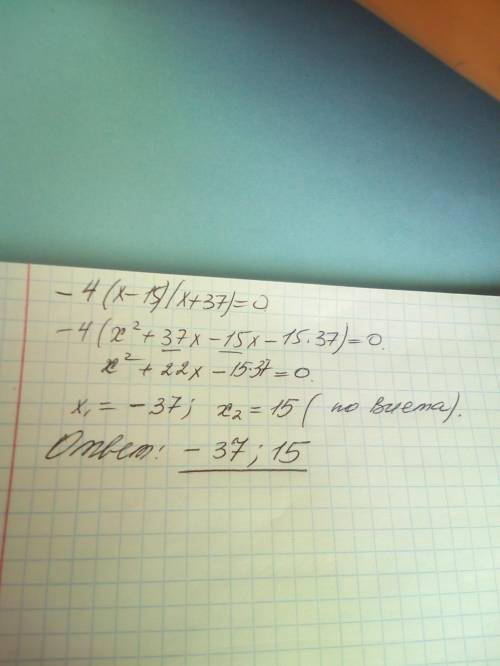 -4(x-15)(x+37)=0
-4(x²+37x-15x-15·37)=0.
x²+22x-15·37=0.
x₁=-37; x₂=15 (по Виета).
Ответ: -37; 15